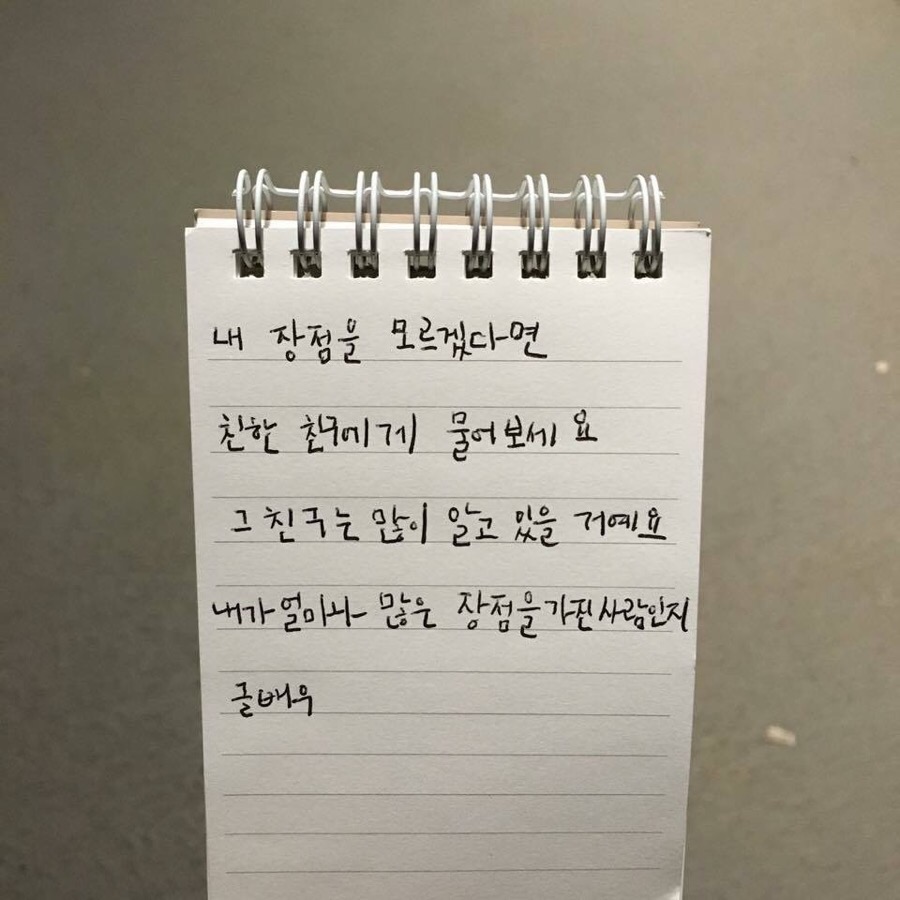 내 장점을 모르겠다면
친한 친구에게 물어보세요
그 친구는 많이 알고 있을 거예요
내가 얼마나 많은 장점을 가진 사람인지
글배우